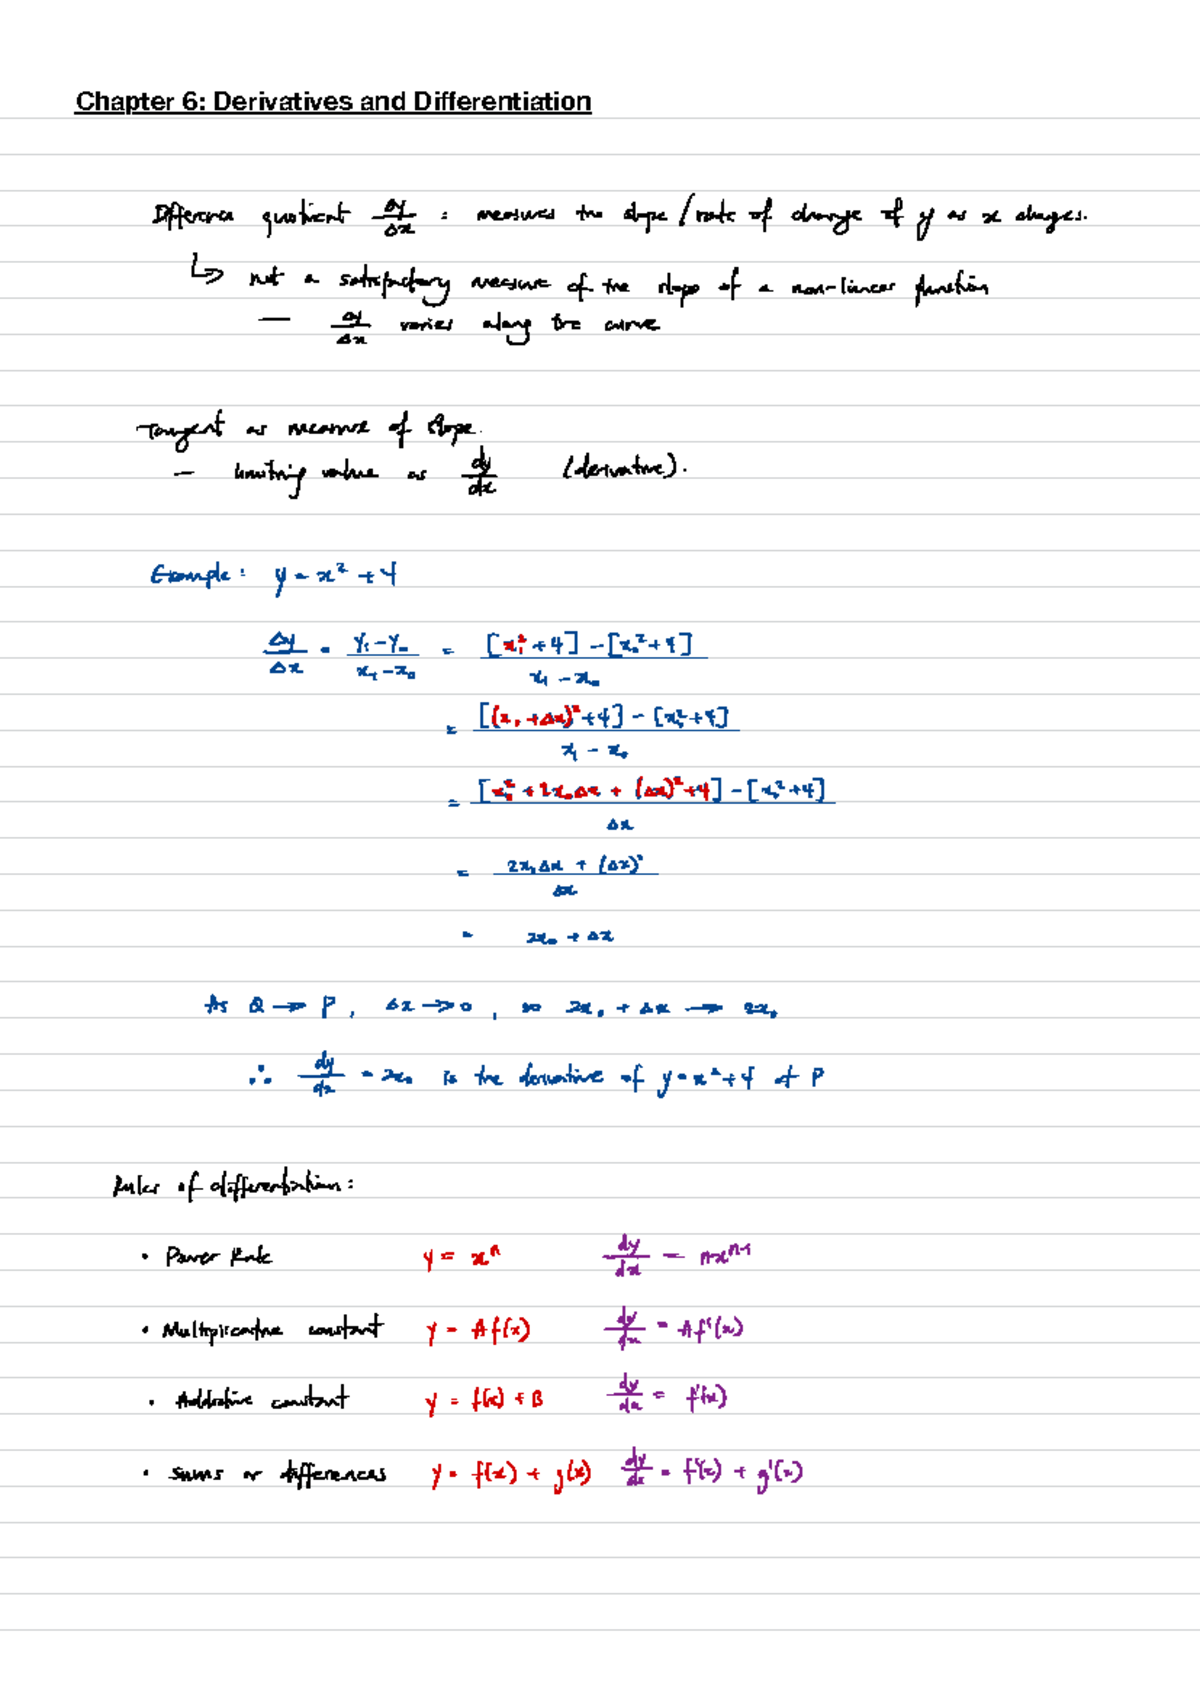 Chapter 6: Derivatives and Differentiation
Difference quotient Δy/Δx : measures the slope / rate of change of y as x changes.
↳ not a satisfactory measure of the slope of a non-linear function
— Δy/Δx varies along the curve
Tangent as measure of slope.
— limiting value as dy/dx (derivative).
Example: y = x² + 4
Δy/Δx = (y₁ − y₀)/(x₁ − x₀) = ([x₁² + 4] − [x₀² + 4])/(x₁ − x₀)
= ([(x₀ + Δx)² + 4] − [x₀² + 4])/(x₁ − x₀)
= ([x₀² + 2x₀Δx + (Δx)² + 4] − [x₀² + 4])/Δx
= (2x₀Δx + (Δx)²)/Δx
= 2x₀ + Δx
As Q → P, Δx → 0, so 2x₀ + Δx → 2x₀
∴ dy/dx = 2x₀ is the derivative of y = x² + 4 at P
Rules of differentiation:
• Power Rule y = xⁿ dy/dx = nxⁿ⁻¹
• Multiplicative constant y = Af(x) dy/dx = Af'(x)
• Additive constant y = f(x) + B dy/dx = f'(x)
• Sums or differences y = f(x) + g(x) dy/dx = f'(x) + g'(x)